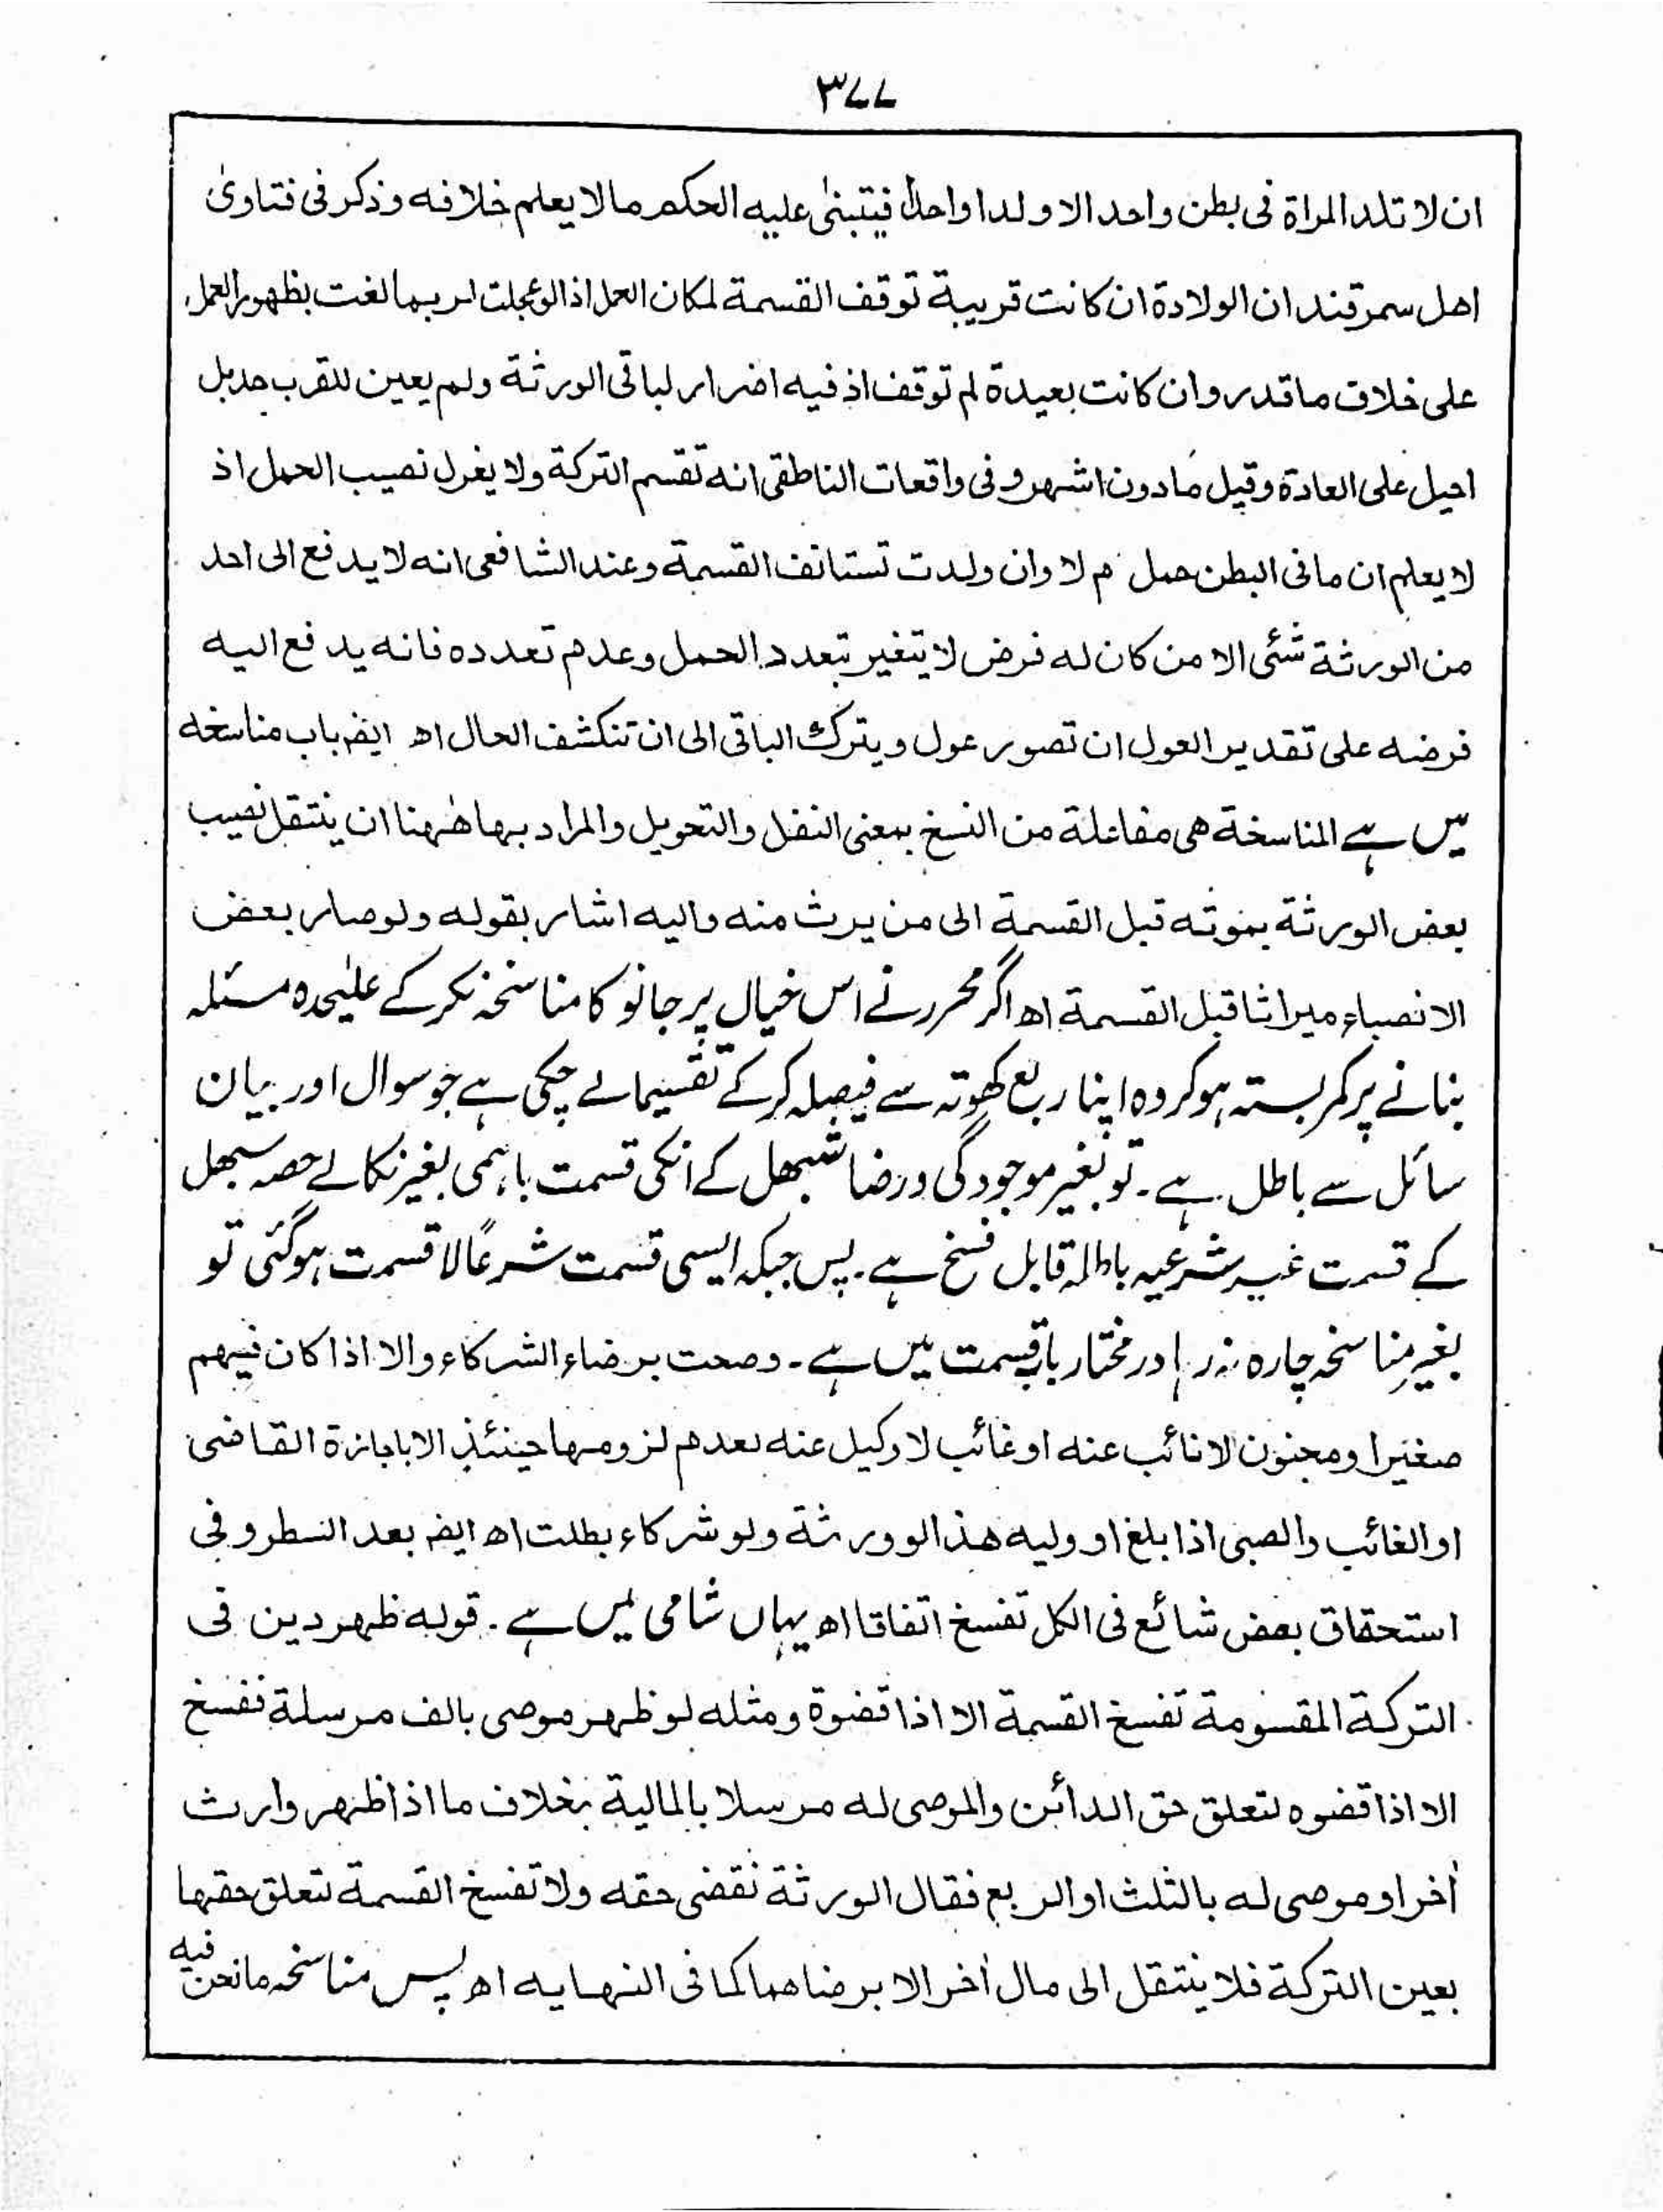 ۳۷۷
ان لا تلد المراۃ فی بطن واحد الا ولدا واحدا فیتبنیٰ علیہ الحکم مالا یعلم خلافہ وذکر فی فتاویٰ
اھل سمرقند ان الولادۃ ان کانت قریبۃ توقف القسمۃ لمکان الحمل اذالو عجلت لربما لغت بظھور الحمل
علی خلاف ما قدر وان کانت بعیدۃ لم توقف اذ فیہ اضرار لباقی الورثۃ ولم یعین للقرب حد بل
احیل علی العادۃ وقیل مادون اشھر وفی واقعات الناطقی انہ تقسم الترکۃ ولا یغرل نصیب الحمل اذ
لا یعلم ان مافی البطن حمل م لا وان ولدت تستانف القسمۃ وعند الشافعی انہ لا یدفع الی احد
من الورثۃ شئی الا من کان لہ فرض لا یتغیر بتعدد الحمل وعدم تعددہ فانہ یدفع الیہ
فرضہ علی تقدیر العول ان تصور عول ویترک الباقی الی ان تنکشف الحال اھ ایضہ باب مناسخہ
میں ہے المناسخۃ ھی مفاعلۃ من النسخ بمعنی النقل والتحویل والمراد بہا ھٰہنا ان ینتقل نصیب
بعض الورثۃ بموتہ قبل القسمۃ الی من یرث منہ والیہ اشار بقولہ ولو صار بعض
الانصباء میراثا قبل القسمۃ اھ اگر محررنے اس خیال پر جانو کا مناسخہ نکرکے علیٰحدہ مسئلہ
بنانے پر کمربستہ ہوکر وہ اپنا ربع کھوتہ سے فیصلہ کرکے تقسیمالے چکی ہے جو سوال اور بیان
سائل سے باطل ہے۔ تو بغیر موجودگی ورضا سنبھل کے انکی قسمت باہمی بغیر نکالے حصہ سنبھل
کے قسمت غیر شرعیہ باطلہ قابل فسخ ہے۔ پس جبکہ ایسی قسمت شرعًا لا قسمت ہوگئی تو
بغیر مناسخہ چارہ نہ رہا درمختار باب قسمت میں ہے۔ وصحت برضاء الشرکاء والا اذا کان فیھم
صغیرا ومجنون لا نائب عنہ او غائب لا وکیل عنہ لعدم لزومھا حینئذٍ الا باجازۃ القاضی
او الغائب والصبی اذا بلغ او ولیہ ھذالو ورثۃ ولو شرکاء بطلت اھ ایضہ بعد السطر وفی
استحقاق بعض شائع فی الکل تفسخ اتفاقا اھ یہاں شامی میں ہے۔ قولہ ظھر دین فی
الترکۃ المقسومۃ تفسخ القسمۃ الا اذا قضوۃ ومثلہ لو ظھر موصی بالف مرسلۃ فنفسخ
الا اذا قضوہ لتعلق حق الدائن والموصی لہ مرسلا بالمالیۃ بخلاف ما اذا ظھر وارث
اٰخر او موصی لہ بالثلث او الربع فقال الورثۃ نقضی حقہ ولا تفسخ القسمۃ لتعلق حقہا
بعین الترکۃ فلا ینتقل الی مال اٰخر الا برضاھما کما فی النہایہ اھ پس مناسخہ مانحن فیہ